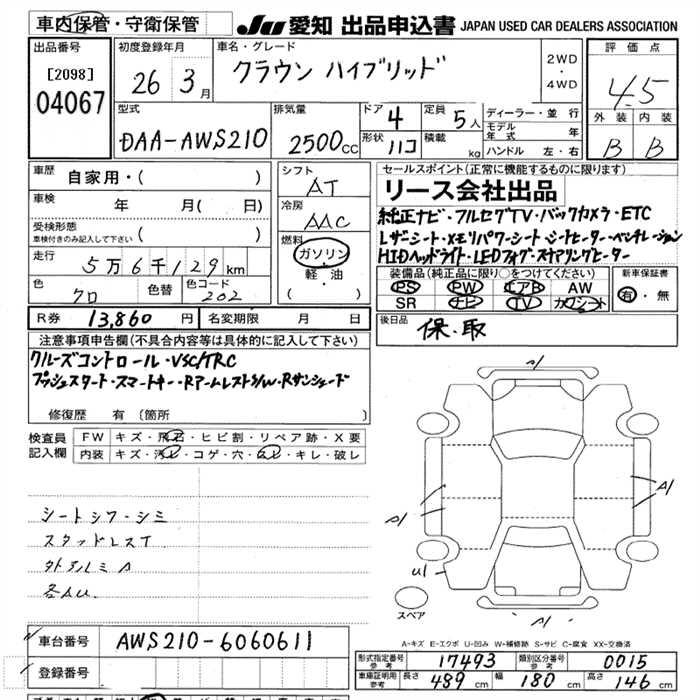 車内保管・守衛保管
JU 愛知 出品申込書 JAPAN USED CAR DEALERS ASSOCIATION
出品番号
[2098]
04067
初度登録年月
26 3月
車名・グレード
クラウン ハイブリッド
2WD
・
4WD
評価点
4.5
外装 内装
B B
型式
DAA-AWS210
排気量
2500cc
ドア 4
形状 ハコ
定員 5人
積載 kg
ディーラー・並行
モデル年式 年
ハンドル 左・右
車歴
自家用・( )
車検 年 月( 日)
受検形態
車検付きのみ記入して下さい ( )
走行
5万6千129km
色 クロ
色替
色コード 202
シフト
AT
冷房
AAC
燃料
ガソリン
・
軽・油
( )
セールスポイント(正常に機能するものに限ります)
リース会社出品
純正ナビ・フルセグTV・バックカメラ・ETC
Lザーシート・メモリパワーシート・シートヒーター・ベンチレーション
HIDヘッドライト・LEDフォグ・ステアリングヒーター
装備品(純正品に限り○をつけてください) 新車保証書
PS PW エアB AW
SR ナビ TV カワシート
有・無
R券 13,860円 名変期限 月 日
後日品 保・取
注意事項申告欄(不具合内容等は具体的に記入して下さい)
クルーズコントロール・VSC/TRC
プッシュスタート・スマートキー・RアームレストS/W・Rサンシェード
修復歴 有 〔箇所
検査員
記入欄
FW キズ・飛石・ヒビ割・リペア跡・X要
内装 キズ・汚レ・コゲ・穴・スレ・キレ・破レ
シートシワ・シミ
スタッドレスT
外アルミA
各AU.
A1
A1
A1
U1
A1
スペア
A-キズ E-エクボ U-凹み W-補修跡 S-サビ C-腐食 XX-交換済
車台番号 AWS210-6060611
登録番号
形式指定番号 参考 17493
類別区分番号 参考 0015
車庫証明用 参考 長さ 489cm 幅 180cm 高さ 146cm